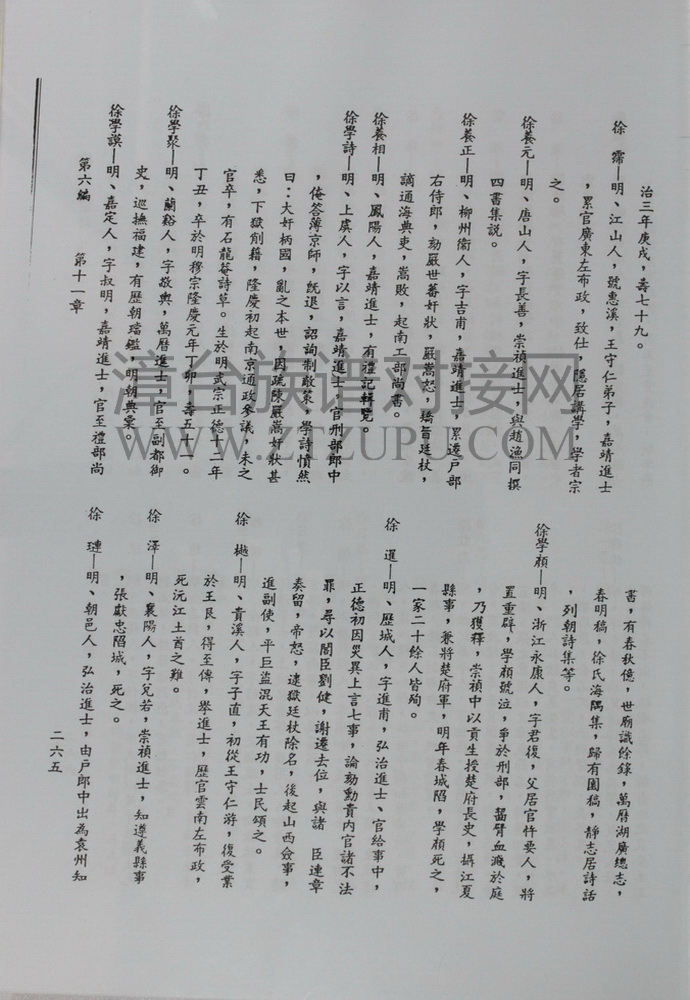 治三年庚戌，壽七十九。
徐　霈—明、江山人，號惠溪，王守仁弟子，嘉靖進士
，累官廣東左布政，致仕，隱居講學，學者宗
之。
徐養元—明、唐山人，字長善，崇禎進士，與趙漁同撰
四書集說。
徐養正—明、柳州衞人，字吉甫，嘉靖進士，累遷戶部
右侍郎，劾嚴世蕃奸狀，嚴嵩怒，矯旨廷杖，
謫通海典吏，嵩敗，起南工部尚書。
徐養相—明、鳳陽人，嘉靖進士，有禮記輯覽。
徐學詩—明、上虞人，字以言，嘉靖進士，官刑部郎中
，俺答薄京師，旣退，詔詢制敵策，學詩憤然
曰：大奸柄國，亂之本世，因疏陳嚴嵩奸狀甚
悉，下獄削籍，隆慶初起南京通政參議，未之
官卒，有石龍菴詩草。生於明武宗正德十二年
丁丑，卒於明穆宗隆慶元年丁卯，壽五十一。
徐學聚—明、蘭谿人，字敬輿，萬曆進士，官至副都御
史，巡撫福建，有歷朝璫鑑，明朝典彙。
徐學謨—明、嘉定人，字叔明，嘉靖進士，官至禮部尚
第六編　第十一章
書，有春秋億，世廟識餘錄，萬曆湖廣總志，
春明稿，徐氏海隅集，歸有園稿，靜志居詩話
，列朝詩集等。
徐學顏—明、浙江永康人，字君復，父居官忤要人，將
置重辟，學顏號泣，爭於刑部，齧臂血濺於庭
，乃獲釋，崇禎中以貢生授楚府長史，攝江夏
縣事，兼將楚府軍，明年春城陷，學顏死之，
一家二十餘人皆殉。
徐　暹—明、歷城人，字進甫，弘治進士、官給事中，
正德初因災異上言七事，論劾勳貴內官諸不法
罪，尋以閣臣劉健，謝遷去位，與諸　臣連章
奏留，帝怒，逮獄廷杖除名，後起山西僉事，
進副使，平巨盜混天王有功，士民頌之。
徐　樾—明、貴溪人，字子直，初從王守仁游，復受業
於王艮，得至傳，舉進士，歷官雲南左布政，
死沅江土酋之難。
徐　澤—明、襄陽人，字兌若，崇禎進士，知遵義縣事
，張獻忠陷城，死之。
徐　璉—明、朝邑人，弘治進士，由戶郎中出為袁州知
二六五
漳台族谱对接网
WWW.ZTZUPU.COM